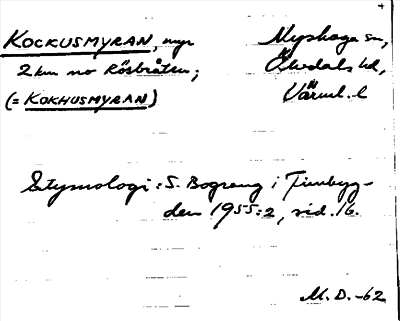 KOCKUSMYRAN, myr
2 km no Rösbråten;
(= KOKHUSMYRAN)
Nyskoga sn,
Älvdals hd,
Värml. l
Etymologi: S. Bograng i Finnbyg-
den 1955:2, sid. 16.
M. D. -62